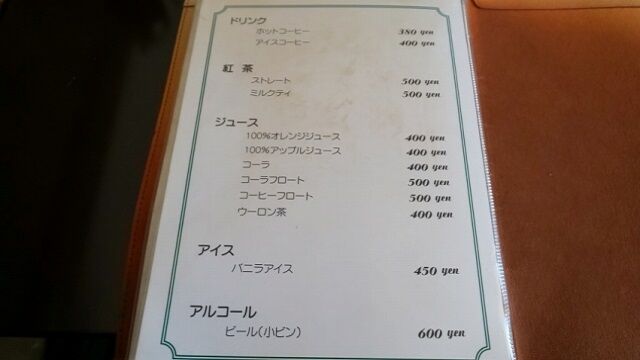 ドリンク
ホットコーヒー 380 yen
アイスコーヒー 400 yen
紅 茶
ストレート 500 yen
ミルクティ 500 yen
ジュース
100%オレンジジュース 400 yen
100%アップルジュース 400 yen
コーラ 400 yen
コーラフロート 500 yen
コーヒーフロート 500 yen
ウーロン茶 400 yen
アイス
バニラアイス 450 yen
アルコール
ビール(小ビン) 600 yen